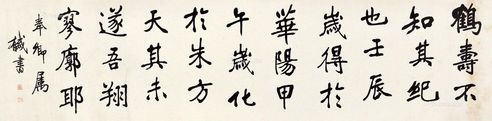 鶴壽不
知其紀
也壬辰
歲得於
華陽甲
午歲化
於朱方
天其未
遂吾翔
寥廓耶
奉卿屬
檝書